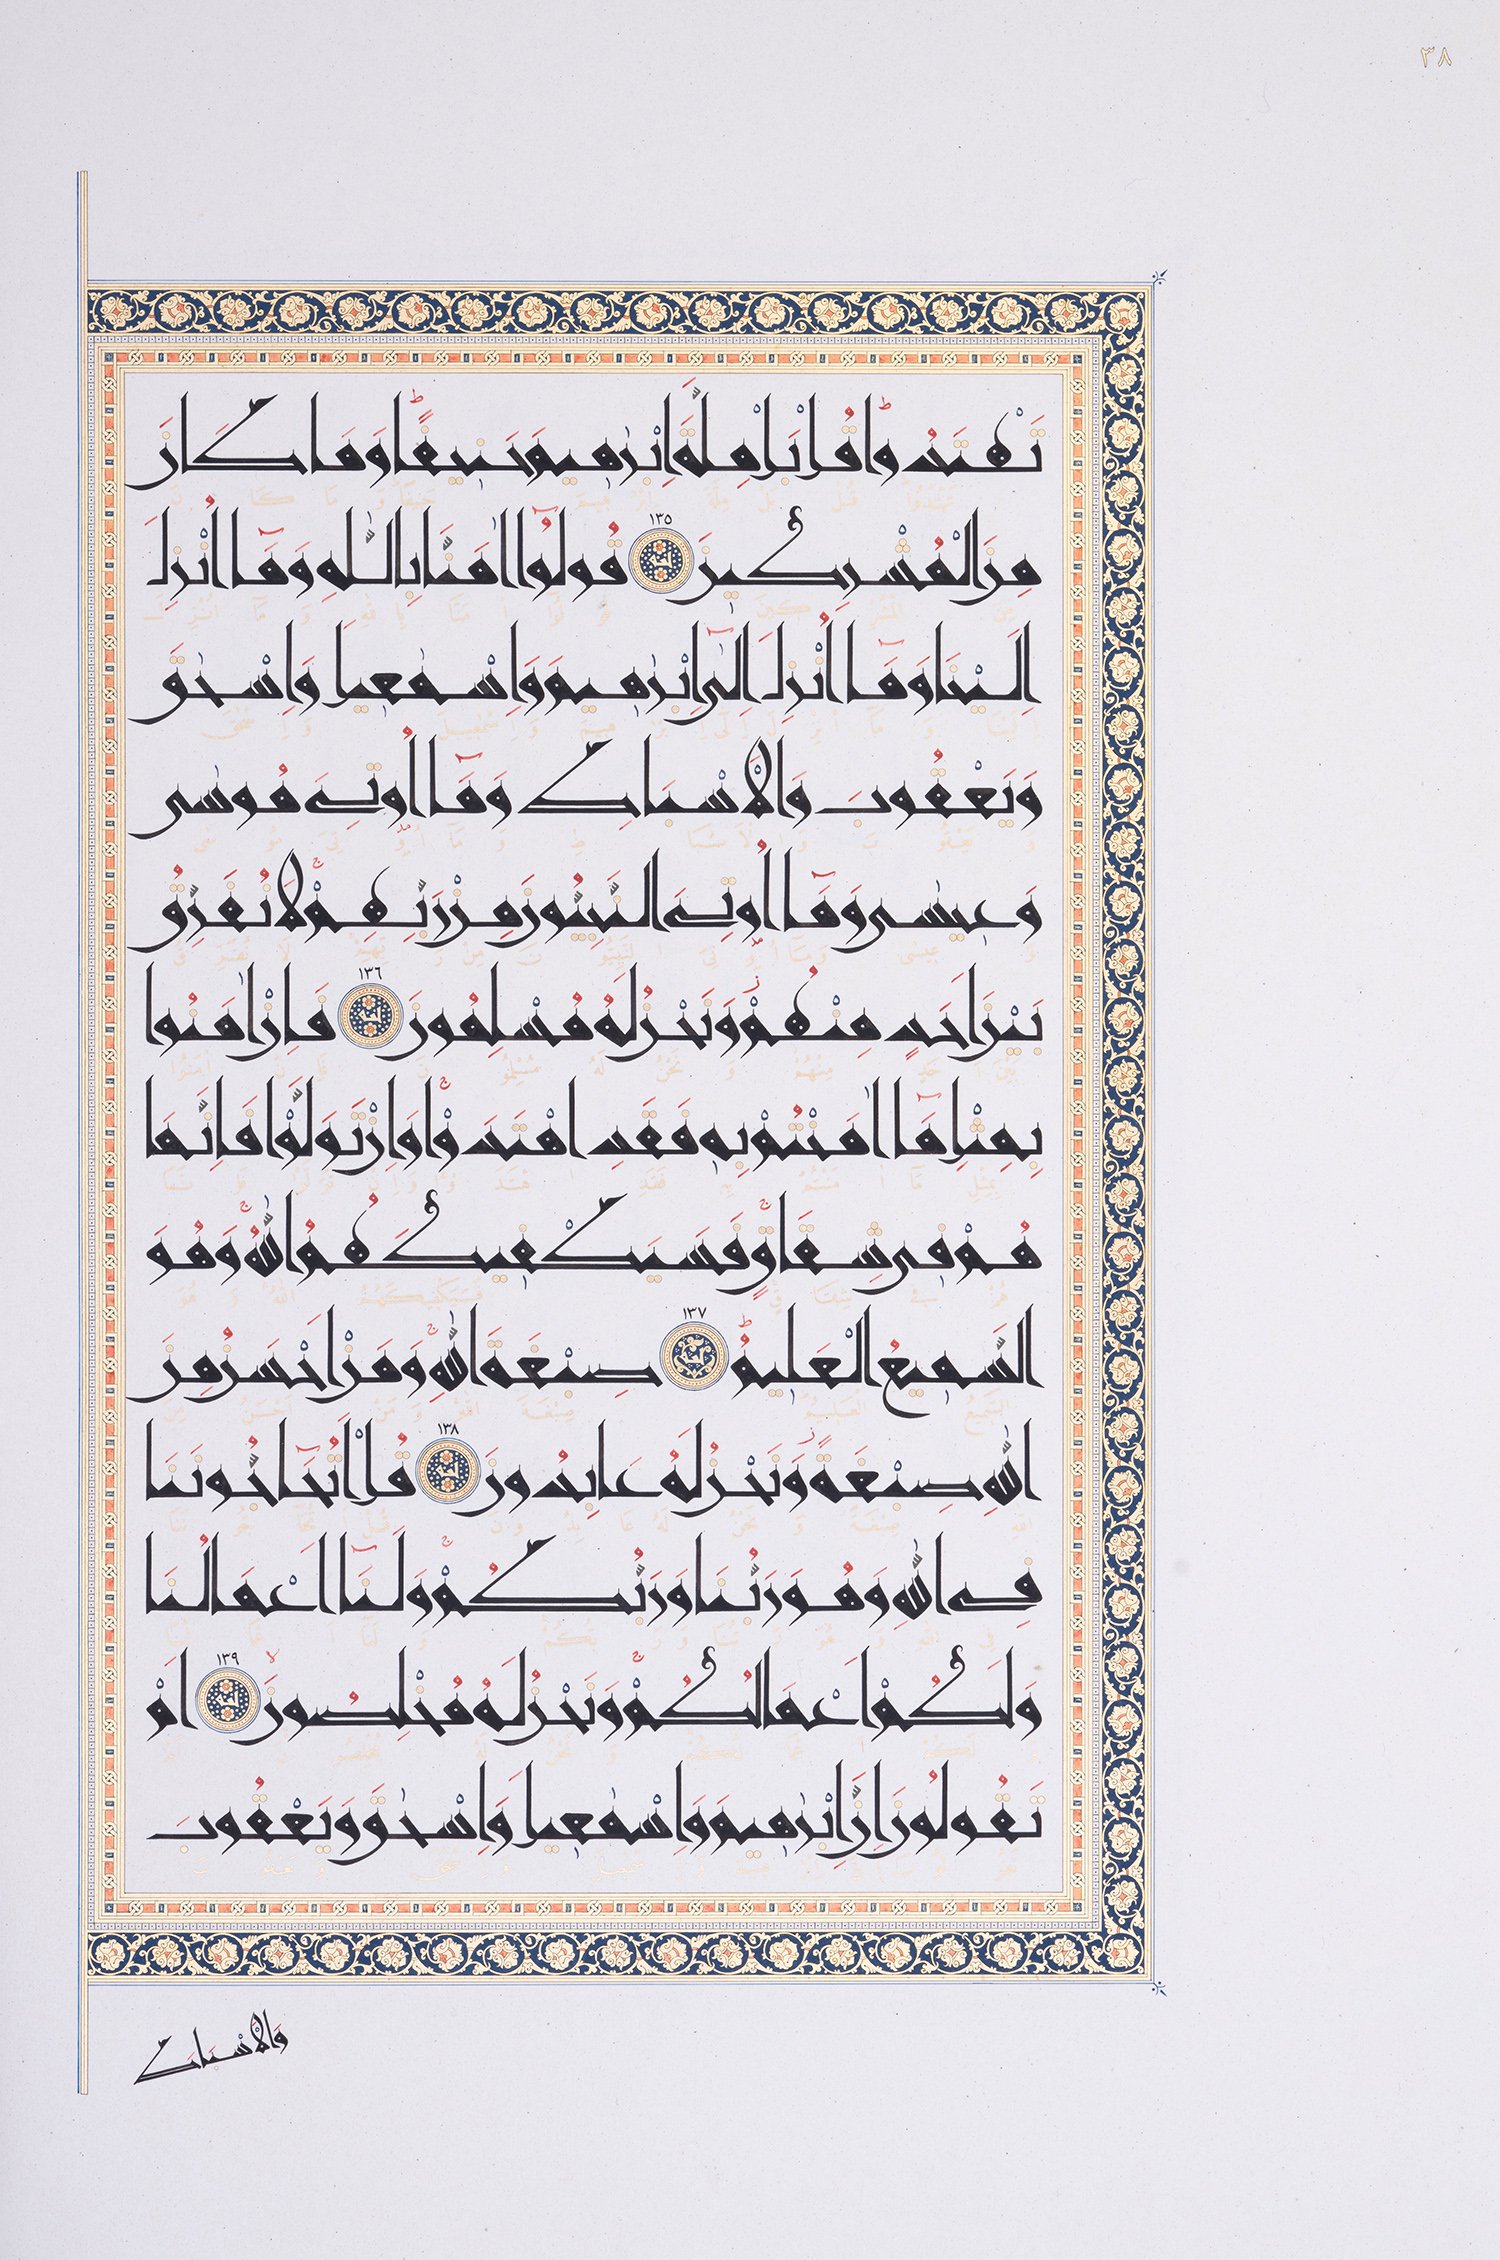 ٣٨
تَهْتَدُوا قُلْ بَلْ مِلَّةَ إِبْرٰهِيمَ حَنِيفًا وَمَا كَانَ
مِنَ الْمُشْرِكِينَ ١٣٥ قُولُوٓا اٰمَنَّا بِاللّٰهِ وَمَآ اُنْزِلَ
اِلَيْنَا وَمَآ اُنْزِلَ اِلٰٓى اِبْرٰهِيمَ وَاِسْمٰعِيلَ وَاِسْحٰقَ
وَيَعْقُوبَ وَالْاَسْبَاطِ وَمَآ اُوتِيَ مُوسٰى
وَعِيسٰى وَمَآ اُوتِيَ النَّبِيُّونَ مِنْ رَبِّهِمْ لَا نُفَرِّقُ
بَيْنَ اَحَدٍ مِنْهُمْ وَنَحْنُ لَهُ مُسْلِمُونَ ١٣٦ فَاِنْ اٰمَنُوا
بِمِثْلِ مَآ اٰمَنْتُمْ بِهِ فَقَدِ اهْتَدَوْا وَاِنْ تَوَلَّوْا فَاِنَّمَا
هُمْ فِي شِقَاقٍ فَسَيَكْفِيكَهُمُ اللّٰهُ وَهُوَ
السَّمِيعُ الْعَلِيمُ ١٣٧ صِبْغَةَ اللّٰهِ وَمَنْ اَحْسَنُ مِنَ
اللّٰهِ صِبْغَةً وَنَحْنُ لَهُ عَابِدُونَ ١٣٨ قُلْ اَتُحَآجُّونَنَا
فِي اللّٰهِ وَهُوَ رَبُّنَا وَرَبُّكُمْ وَلَنَآ اَعْمَالُنَا
وَلَكُمْ اَعْمَالُكُمْ وَنَحْنُ لَهُ مُخْلِصُونَ ١٣٩ اَمْ
تَقُولُونَ اِنَّ اِبْرٰهِيمَ وَاِسْمٰعِيلَ وَاِسْحٰقَ وَيَعْقُوبَ
وَالْاَسْبَاطَ